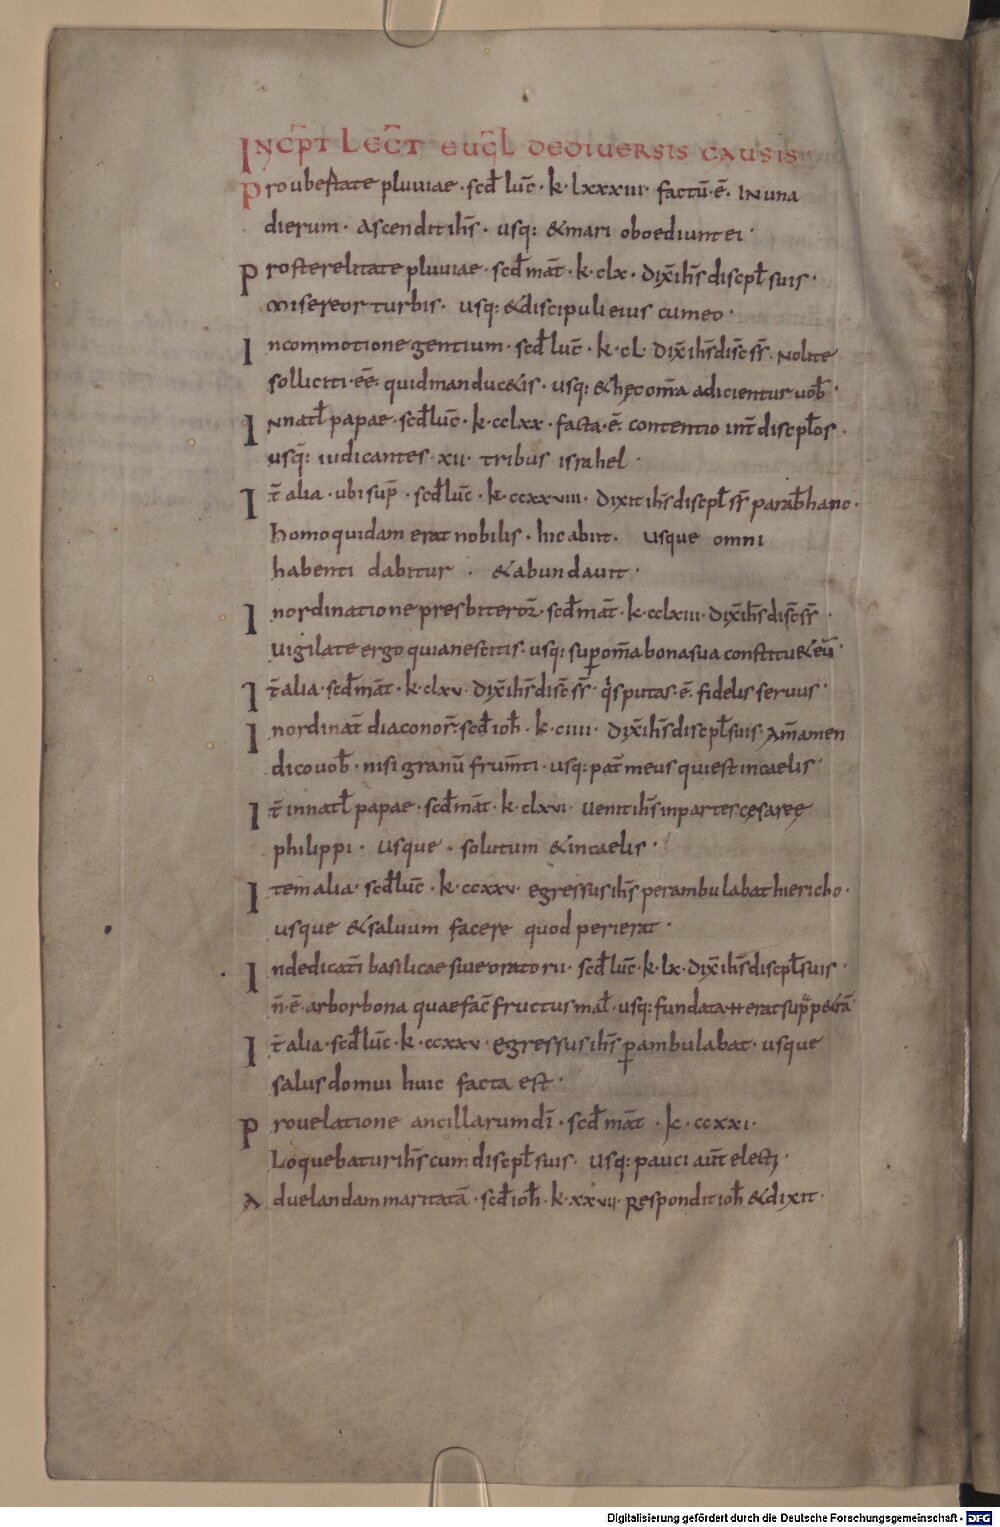 INCP̄T LEC̄T EUḠL DEDIUERSIS CAUSIS
Proubestate pluuiae · scd̄ luc̄ · k · lxxxiii · factū · ē · INuna
dierum · Ascenditih̄s · usq: &mari oboediuntei ·
Prosterelitate pluuiae · scd̄ mat̄ · k · clx · dix̄ih̄sdiscipl̄ suis ·
Misereor turbis · usq: &discipuli eius cumeo ·
Incommotione gentium · scd̄ luc̄ · k · cl · dix̄ih̄sdisc̄ sr̄ · Nolite
solliciti · eē · quidmanduc&is · usq: &hęcom̄a adicientur uob̄ ·
Innatl̄ papae · scd̄luc̄ · k · cclxx · facta · ē · contentio int̄ discpl̄os ·
usq: iudicantes · xii · tribus israhel ·
It̄ alia · ubisup̄ · scd̄luc̄ · k · ccxxviii · dixitih̄sdiscpl̄ sr̄ parab̄hanc ·
homoquidam erat nobilis · hicabiit · usque omni
habenti dabitur · &abundauit ·
Inordinatione presbiteror̄ · scd̄mat̄ · k · cclxiii · dix̄ih̄sdisc̄sr̄
Uigilate ergo quianescitis · usq: superom̄abonasua constitu&eū ·
It̄alia · scd̄mat̄ · k · clxv · dix̄ih̄sdisc̄ sr̄ · q̄sputas · ē · fidelis seruus ·
Inordinat̄ diaconor̄ · scd̄ioh̄ · k · ciiii · dix̄ih̄sdiscpl̄suis · Am̄amen
dicouob̄ · nisi granū frum̄ti · usq: pat̄meus quiestincaelis ·
It̄innatl̄ papae · scd̄mat̄ · k · clxvi · uenitih̄sinpartes cęsaręę
philippi · usque · solutum &incaelis ·
Itemalia · scd̄luc̄ · k · ccxxv · egressusih̄s perambulabathiericho ·
usque &saluum facere quodperierat ·
Indedicati basilicae siueoratorii · scd̄luc̄ · k · lx · dix̄ih̄sdiscpl̄suis ·
n̄ · ē · arborbona quaefac̄ fructusmal̄ · usq: fundata H eratsup̄p&rā
It̄alia · scd̄luc̄ · k · ccxxv · egressusih̄s perambulabat · usque
salusdomui huic facta est ·
Prouelatione ancillarumdī · scd̄ mat̄ · k · ccxxi ·
Loquebaturih̄scum discpl̄suis · usq: pauci aut̄ electi ·
Aduelandammaritatā · scd̄ioh̄ · k · xxvii · Responditioh̄ &dixit ·
Digitalisierung gefördert durch die Deutsche Forschungsgemeinschaft - DFG